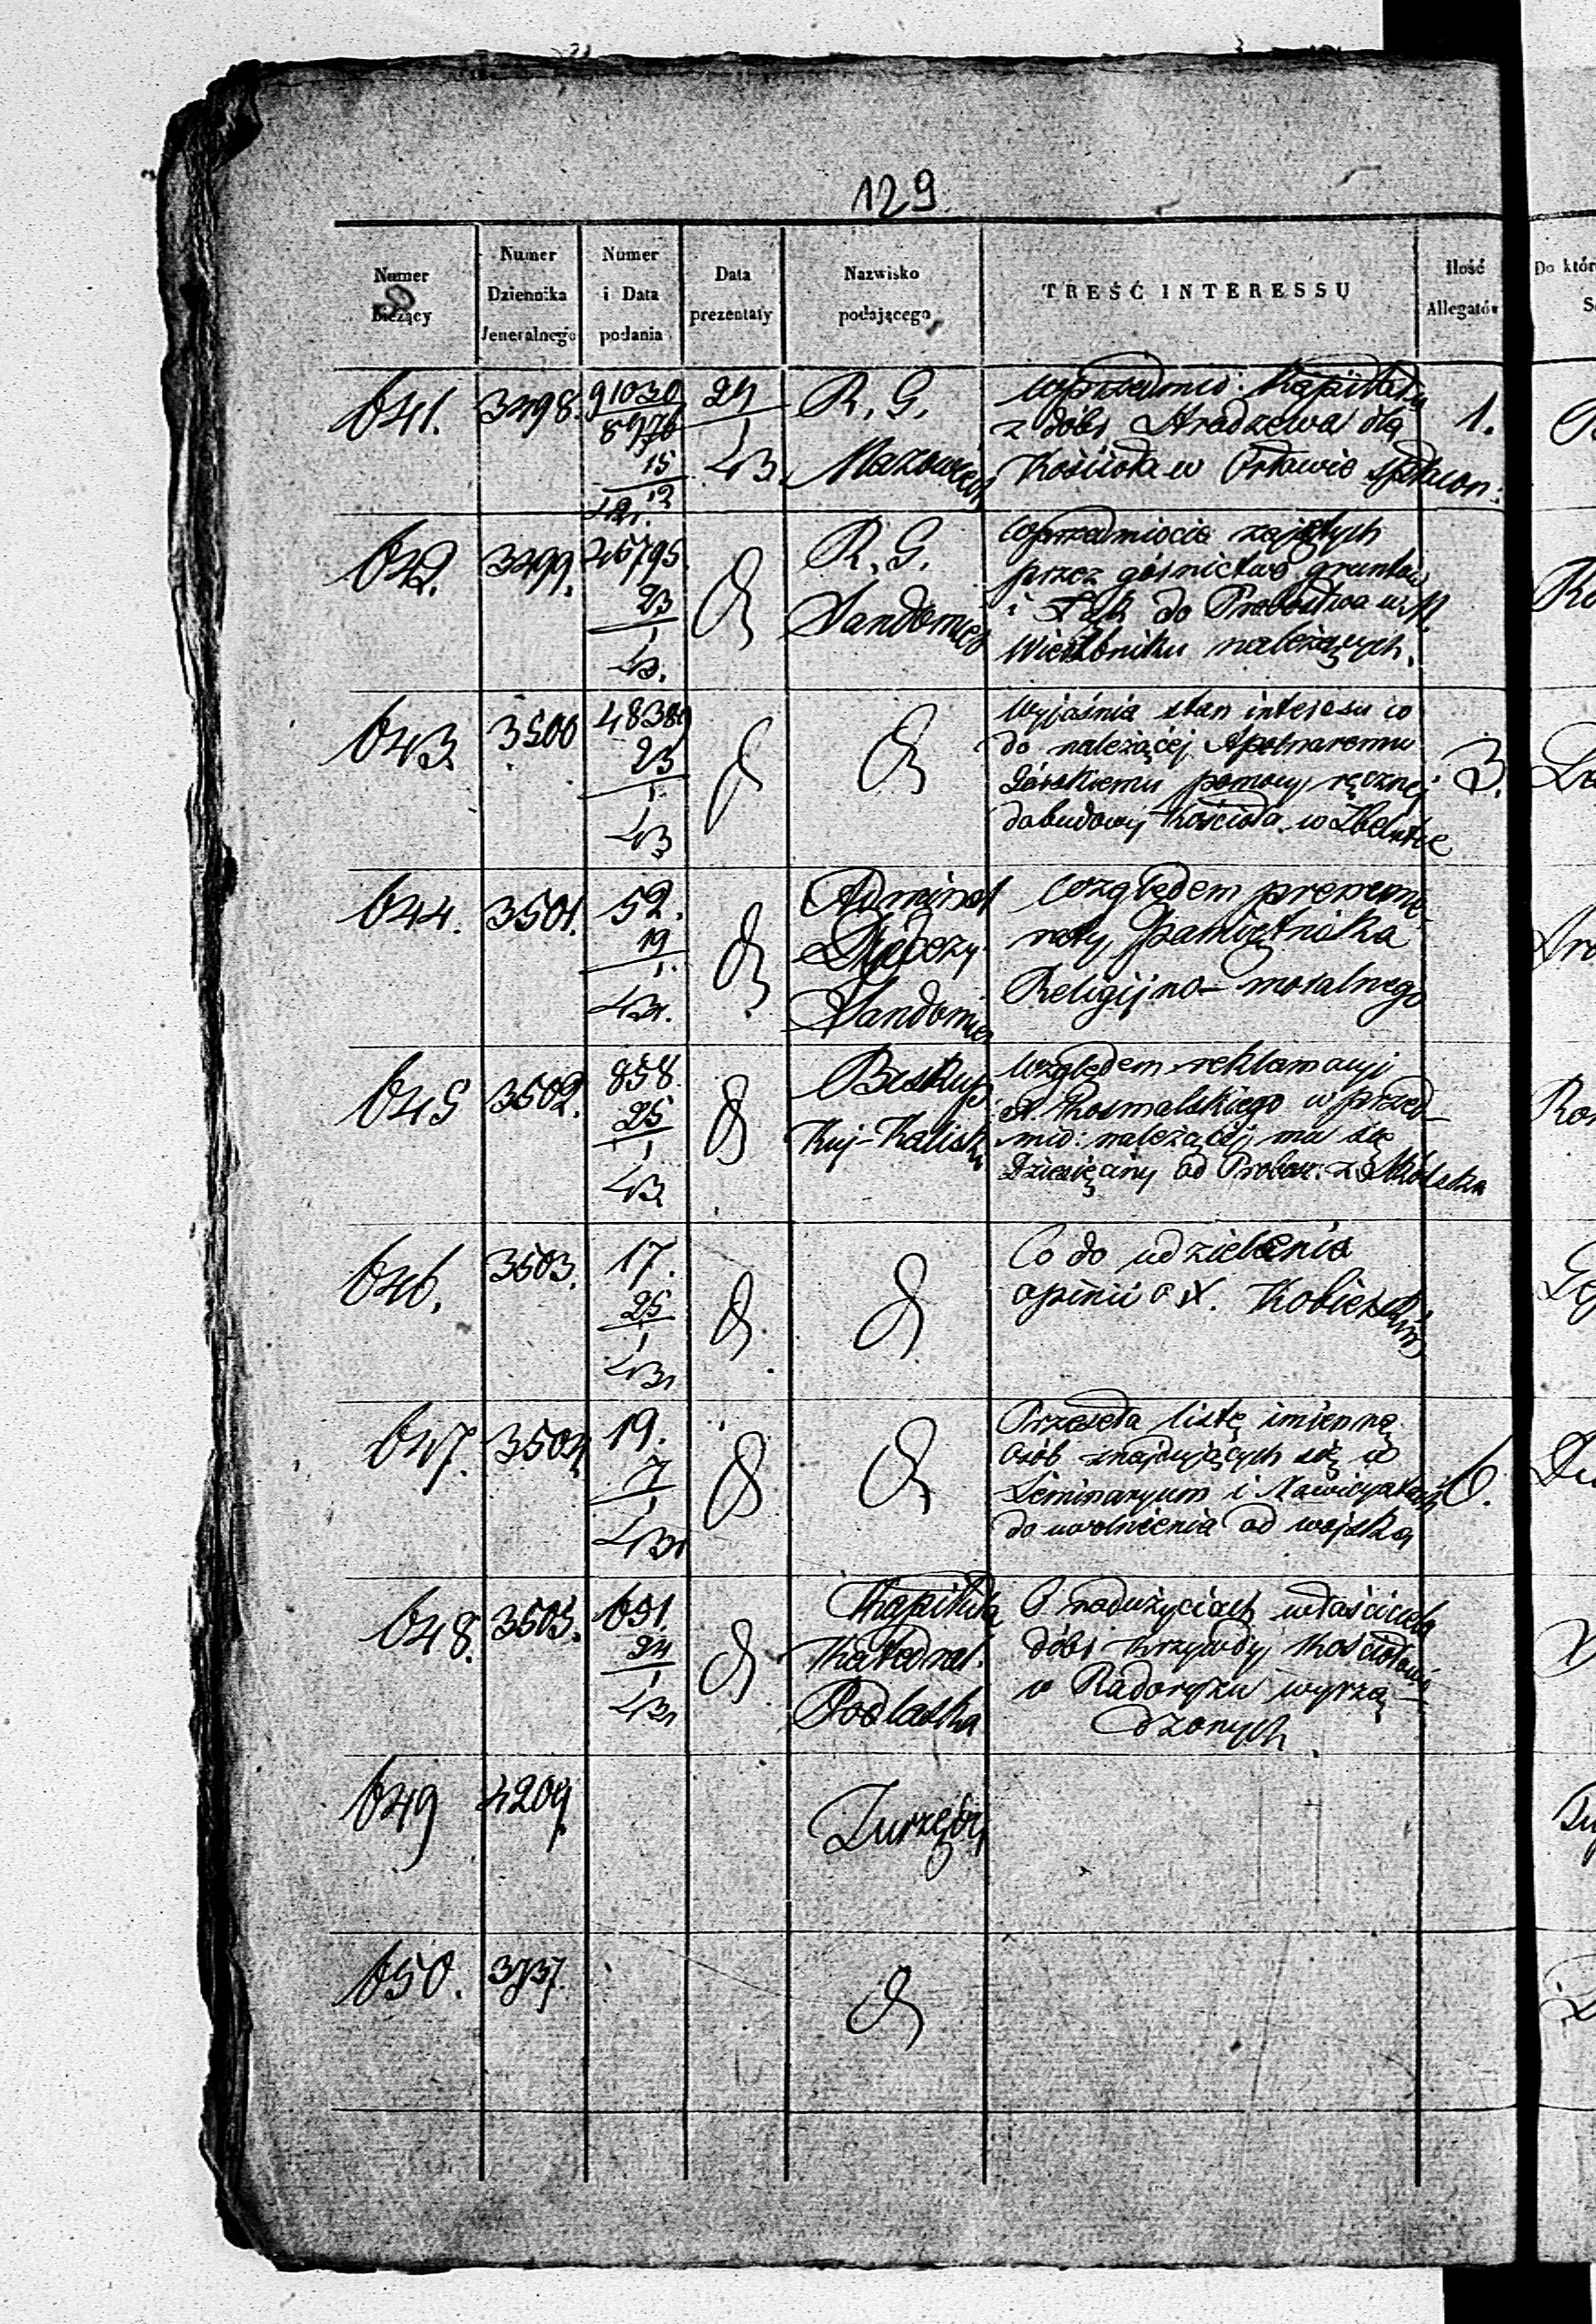 129.
Numer Bieżący
Numer Dziennika Jeneralnego
Numer i Data podania
Data prezentaty
Nazwisko podającego
TREŚĆ INTERESSU
Ilość Allegatów
Do któr
641. 3498.
91030
8976
15
R. G.
Mazowiec
wprzedmio: Kapitału
z dóbr dla
Kościoła w
1.
642. 3499. 25795
23
1
43.
R. G.
Sandomier
wprzedmiocie zajętych
przez górnictwo gruntów
i Łąk do Probostwa w M.
Wierzbniku należących.
643 3500 48380
23
1
43
Wyjaśnia stan interesu co
do należącej Apolinaremu
Górskiemu pomocy ręcznej
do budowy Kościoła w Zbelutce
3.
644. 3501. 52.
19
1.
43.
Administ
Dyecezyi
Sandomier
względem prenume-
raty Pamiętnika
Religijno-moralnego
645 3502. 858.
25
1
43
Biskup
Kuj-Kaliski
Względem reklamacyi
X. Kosmalskiego w przed-
mio: należącej ma się
Dziesięciny od Probos: z
646. 3503. 17.
25
1
43
Co do udzielenia
opinii o X.
647. 3504 19.
7
1
43
Przeseła listę imienną
osób znajdujących się w
Seminaryum i Nowicyatach
do uwolnienia od wojska
6.
648. 3505. 651.
24
1
43
Kapituła
Katedral.
Podlaska
O nadużyciach właściciela
dóbr Krzywdy Kościołowi
w Radoryżu wyrzą-
dzonych.
649 4209.
Zurzędu
650. 3737.